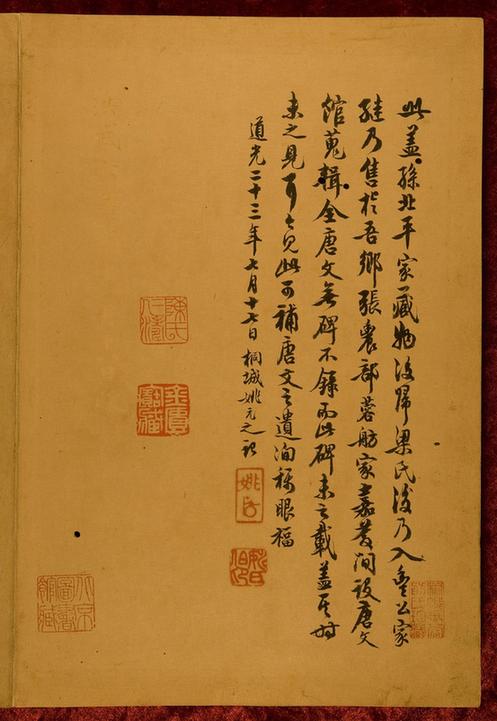 此蓋孫北平家藏物後歸梁氏後乃入公家
繼乃售於吾鄉張農部蓉舫家嘉慶間設唐文
館蒐輯全唐文無碑不錄而此碑未之載蓋其時
未之見耳見此可補唐文之遺洵稱眼福
道光二十三年七月十七日桐城姚元之記
姚氏伯卬
陳氏仁濤
金匱寶藏
北京圖書館藏